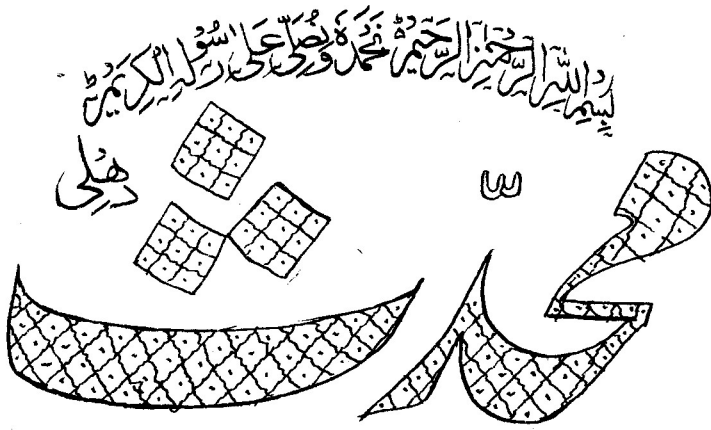 بِسْمِ اللّٰهِ الرَّحْمٰنِ الرَّحِيْمِ نَحْمَدُهٗ وَنُصَلِّیْ عَلٰی رَسُوْلِهِ الْكَرِيْمِ
محدّث
دهلی